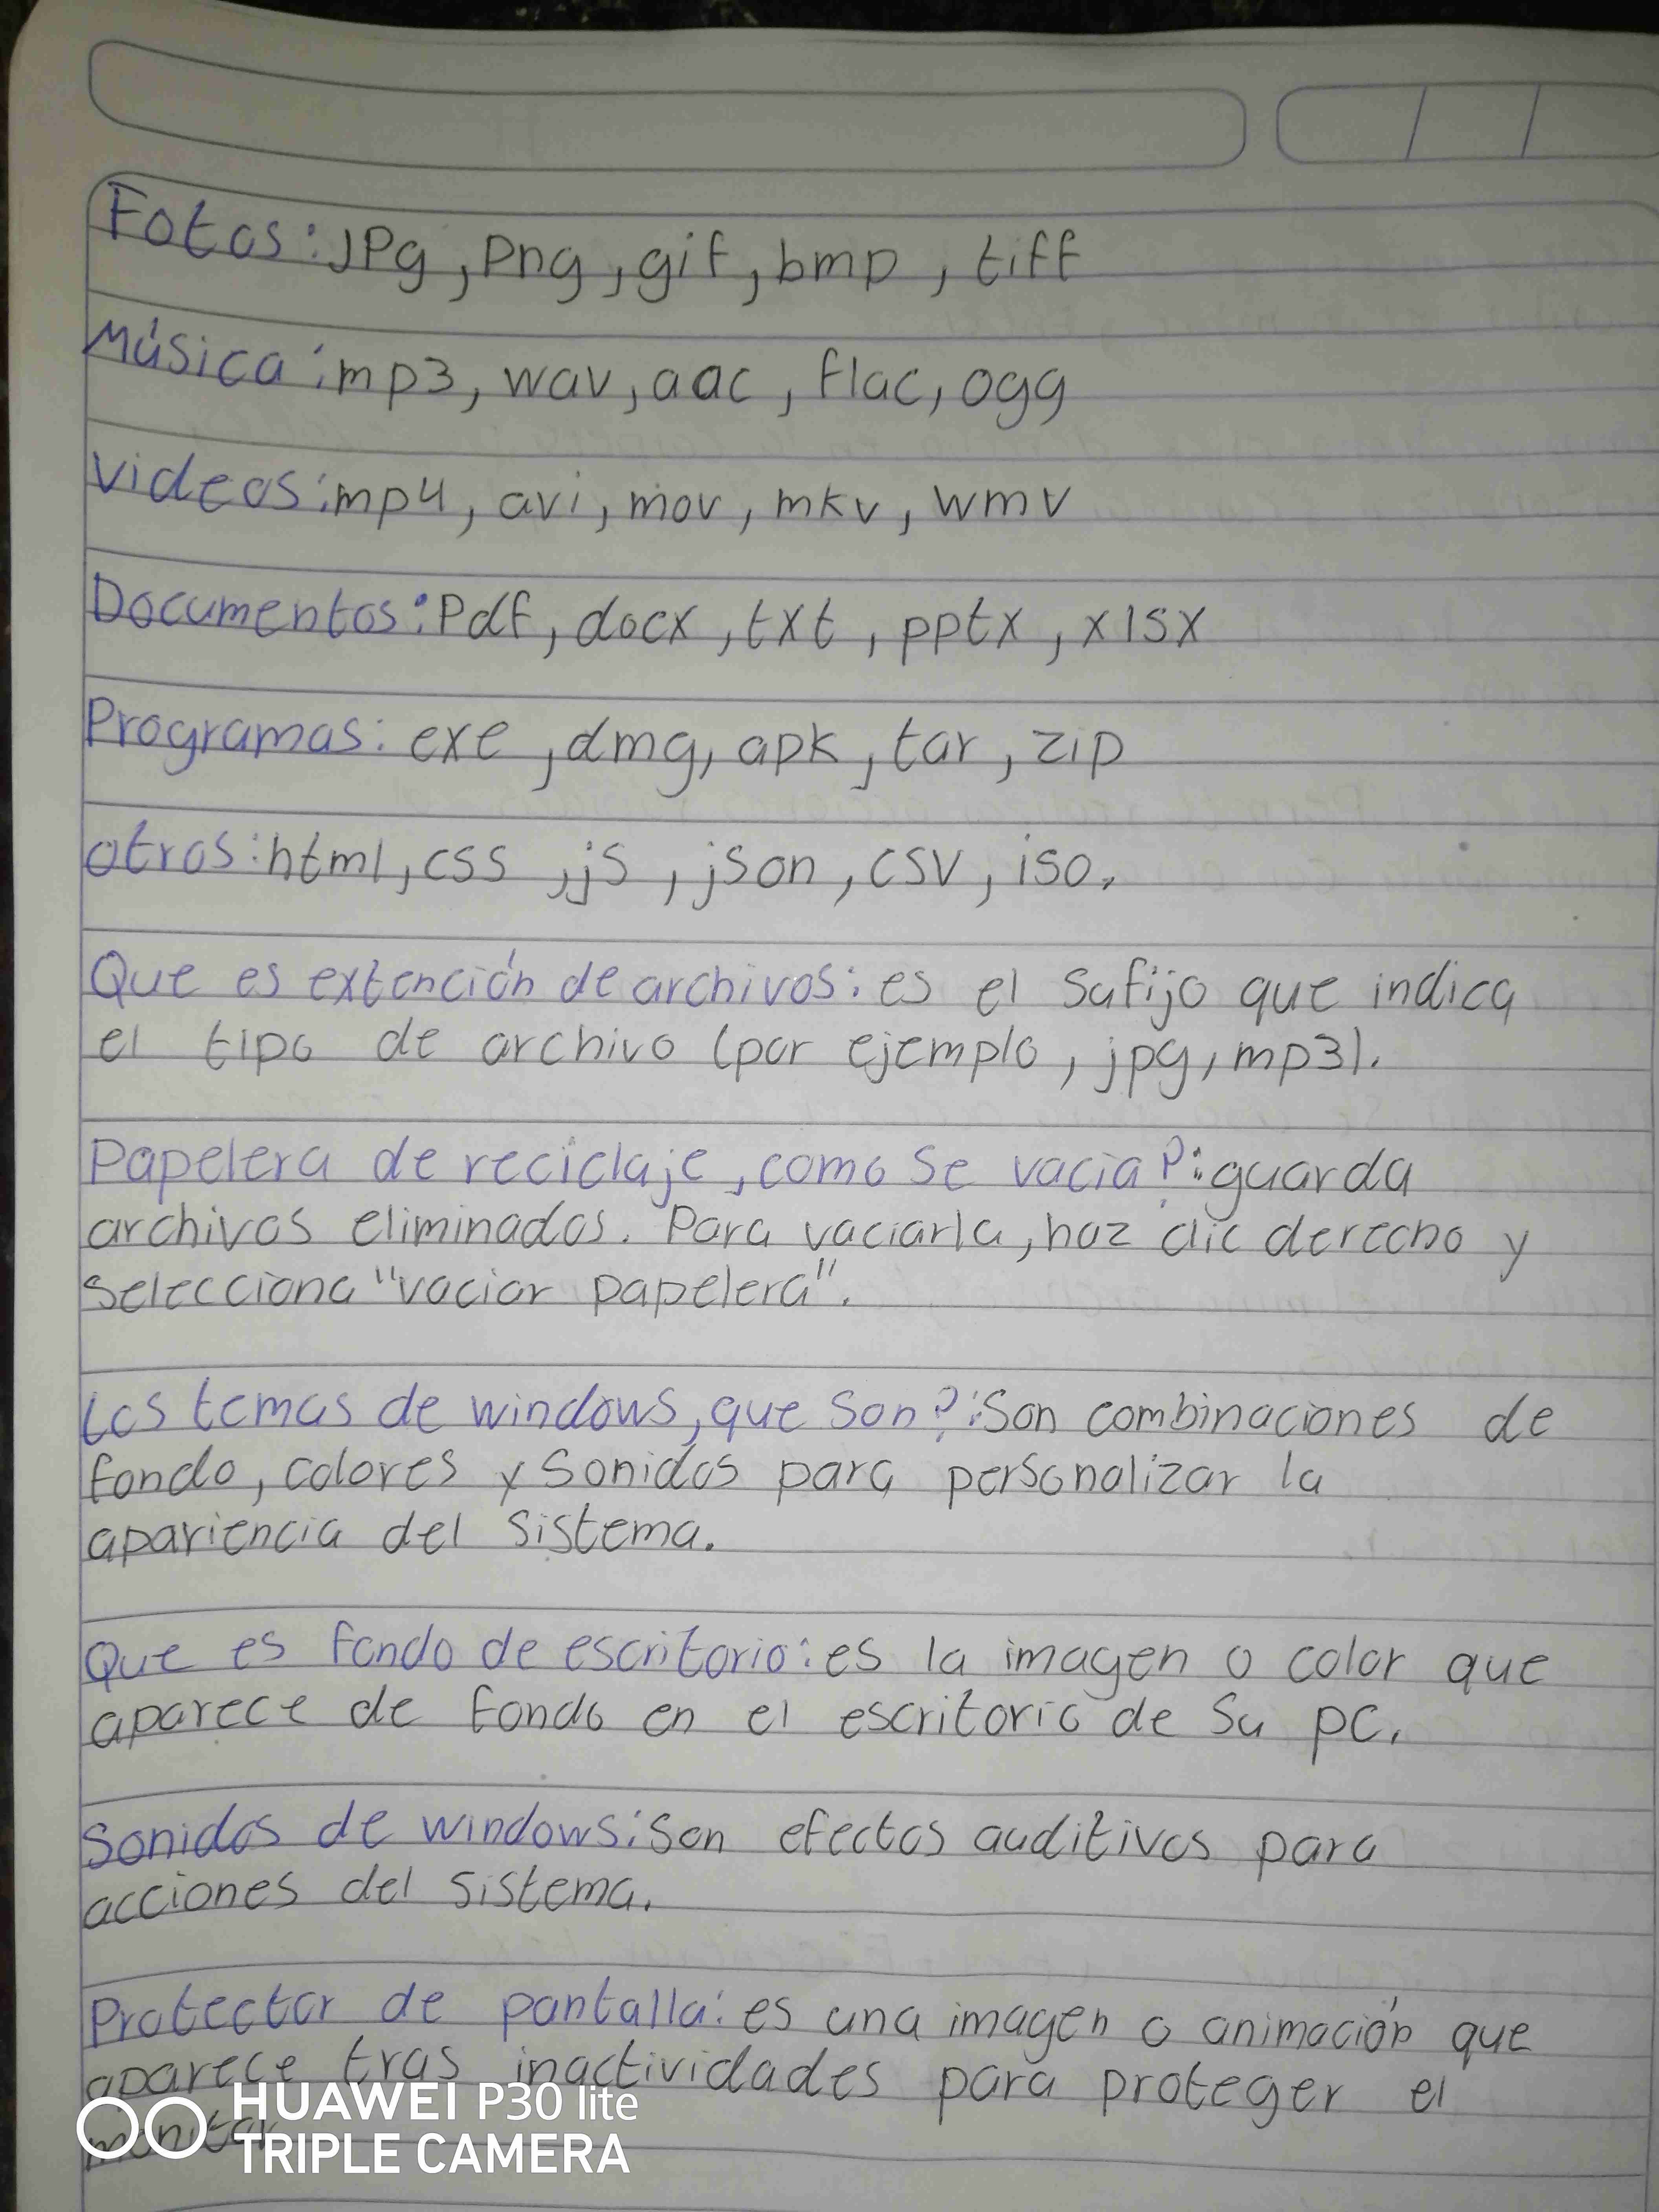 Fotos: jpg, png, gif, bmp, tiff
Música: mp3, wav, aac, flac, ogg
Videos: mp4, avi, mov, mkv, wmv
Documentos: Pdf, docx, txt, pptx, xlsx
Programas: exe, dmg, apk, tar, zip
otros: html, css, js, json, csv, iso.
Que es extención de archivos: es el sufijo que indica
el tipo de archivo (por ejemplo, jpg, mp3).
Papelera de reciclaje, como se vacia?: guarda
archivos eliminados. Para vaciarla, haz clic derecho y
selecciona "vaciar papelera".
Los temas de windows, que son?: Son combinaciones de
fondo, colores y sonidos para personalizar la
apariencia del sistema.
Que es fondo de escritorio: es la imagen o color que
aparece de fondo en el escritorio de su pc.
Sonidos de windows: Son efectos auditivos para
acciones del sistema.
Protector de pantalla: es una imagen o animación que
aparece tras inactividades para proteger el
monitor
HUAWEI P30 lite
TRIPLE CAMERA